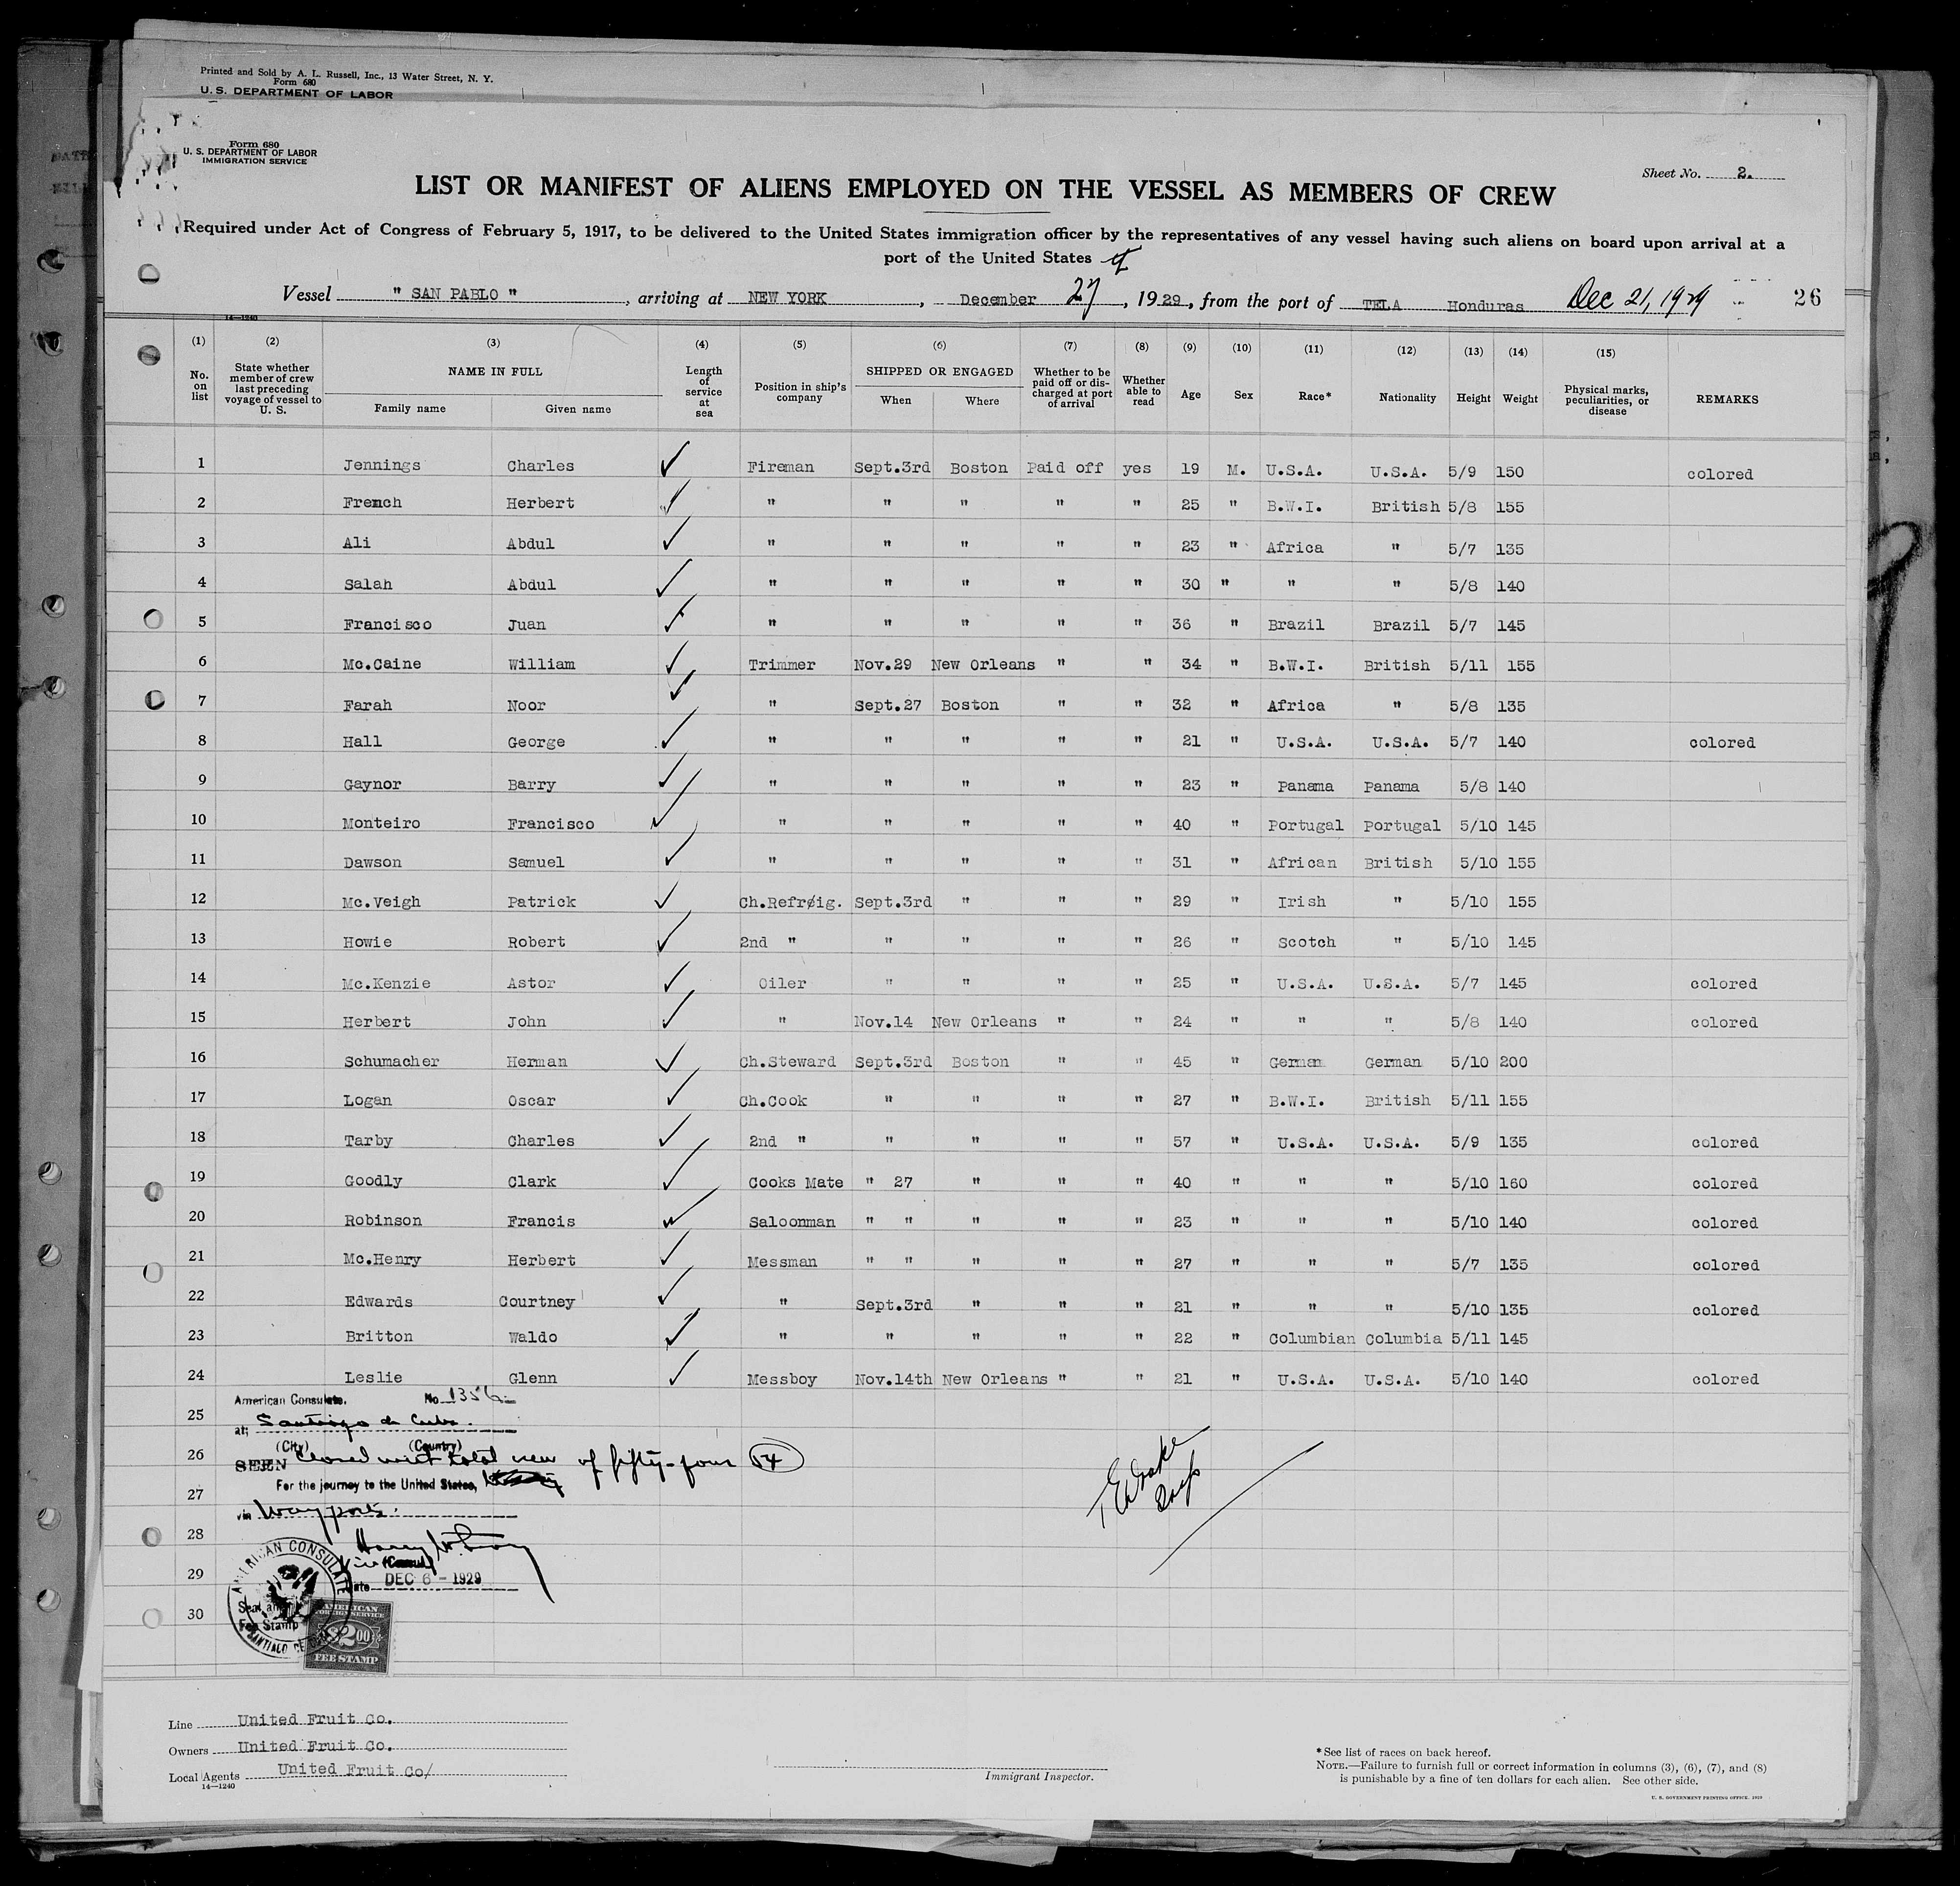 Printed and Sold by A. L. Russell, Inc., 13 Water Street, N. Y.
Form 680
U. S. DEPARTMENT OF LABOR
Form 680
U. S. DEPARTMENT OF LABOR
IMMIGRATION SERVICE
Sheet No. 2.
LIST OR MANIFEST OF ALIENS EMPLOYED ON THE VESSEL AS MEMBERS OF CREW
Required under Act of Congress of February 5, 1917, to be delivered to the United States immigration officer by the representatives of any vessel having such aliens on board upon arrival at a
port of the United States
Vessel " SAN PABLO " , arriving at NEW YORK , December 27 , 1929, from the port of TELA Honduras Dec 21, 1929 26
14—1240
(1) (2) (3) (4) (5) (6) (7) (8) (9) (10) (11) (12) (13) (14) (15)
No. on list State whether member of crew last preceding voyage of vessel to U. S. NAME IN FULL Family name Given name Length of service at sea Position in ship's company SHIPPED OR ENGAGED When Where Whether to be paid off or discharged at port of arrival Whether able to read Age Sex Race* Nationality Height Weight Physical marks, peculiarities, or disease REMARKS
1 Jennings Charles ✓ Fireman Sept.3rd Boston Paid off yes 19 M. U.S.A. U.S.A. 5/9 150 colored
2 French Herbert ✓ " " " " " 25 " B.W.I. British 5/8 155
3 Ali Abdul ✓ " " " " " 23 " Africa " 5/7 135
4 Salah Abdul ✓ " " " " " 30 " " " 5/8 140
5 Francisco Juan ✓ " " " " " 36 " Brazil Brazil 5/7 145
6 Mc.Caine William ✓ Trimmer Nov.29 New Orleans " " 34 " B.W.I. British 5/11 155
7 Farah Noor ✓ " Sept.27 Boston " " 32 " Africa " 5/8 135
8 Hall George ✓ " " " " " 21 " U.S.A. U.S.A. 5/7 140 colored
9 Gaynor Barry ✓ " " " " " 23 " Panama Panama 5/8 140
10 Monteiro Francisco ✓ " " " " " 40 " Portugal Portugal 5/10 145
11 Dawson Samuel ✓ " " " " " 31 " African British 5/10 155
12 Mc.Veigh Patrick ✓ Ch.Refrøig. Sept.3rd " " " 29 " Irish " 5/10 155
13 Howie Robert ✓ 2nd " " " " " 26 " Scotch " 5/10 145
14 Mc.Kenzie Astor ✓ Oiler " " " " 25 " U.S.A. U.S.A. 5/7 145 colored
15 Herbert John ✓ " Nov.14 New Orleans " " 24 " " " 5/8 140 colored
16 Schumacher Herman ✓ Ch.Steward Sept.3rd Boston " " 45 " German German 5/10 200
17 Logan Oscar ✓ Ch.Cook " " " " 27 " B.W.I. British 5/11 155
18 Tarby Charles ✓ 2nd " " " " " 57 " U.S.A. U.S.A. 5/9 135 colored
19 Goodly Clark ✓ Cooks Mate " 27 " " " 40 " " " 5/10 160 colored
20 Robinson Francis ✓ Saloonman " " " " " 23 " " " 5/10 140 colored
21 Mc.Henry Herbert ✓ Messman " " " " " 27 " " " 5/7 135 colored
22 Edwards Courtney ✓ " Sept.3rd " " " 21 " " " 5/10 135 colored
23 Britton Waldo ✓ " " " " " 22 " Columbian Columbia 5/11 145
24 Leslie Glenn ✓ Messboy Nov.14th New Orleans " " 21 " U.S.A. U.S.A. 5/10 140 colored
American Consulate. No. 1356
25
at Santiago de Cuba.
(City) (Country)
26 SEEN Closed with total crew of fifty-four 54
For the journey to the United States,
27
via Way ports.
28
Consul
29 Date DEC 6 - 1929
30
AMERICAN CONSULATE
SANTIAGO DE CUBA
Seal and
Fee Stamp
AMERICAN
FOREIGN SERVICE
$2.00
FEE STAMP
Line United Fruit Co.
Owners United Fruit Co.
Local Agents United Fruit Co/
14—1240
Immigrant Inspector.
* See list of races on back hereof.
NOTE.—Failure to furnish full or correct information in columns (3), (6), (7), and (8)
is punishable by a fine of ten dollars for each alien. See other side.